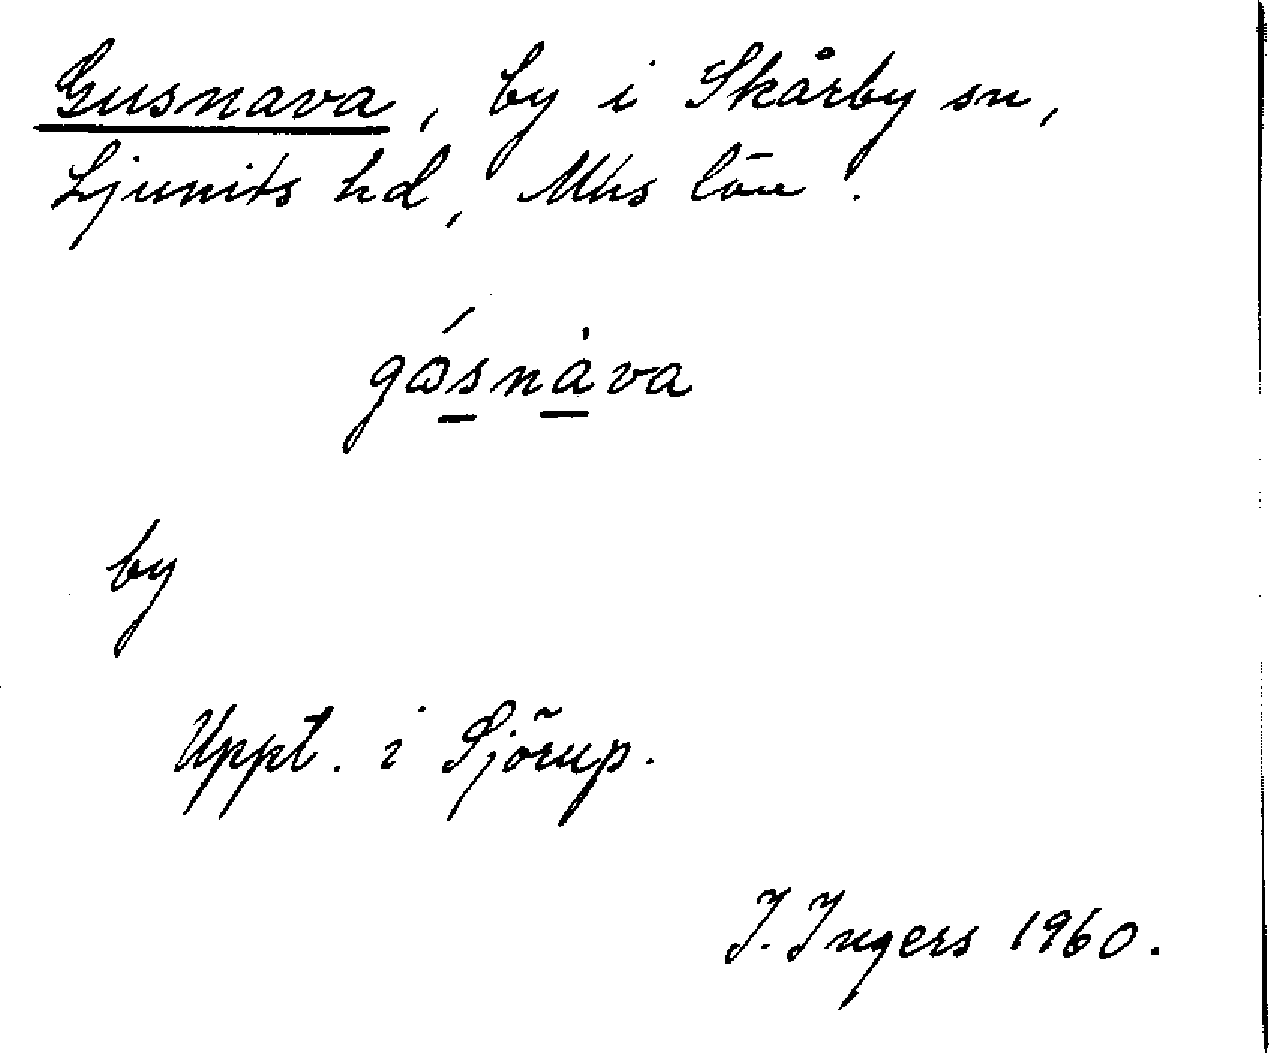 Gusnava, by i Skårby sn,
Ljunits hd, Mhs län.
gɷ́snȧva
by
Uppt. i Sjörup.
I. Ingers 1960.